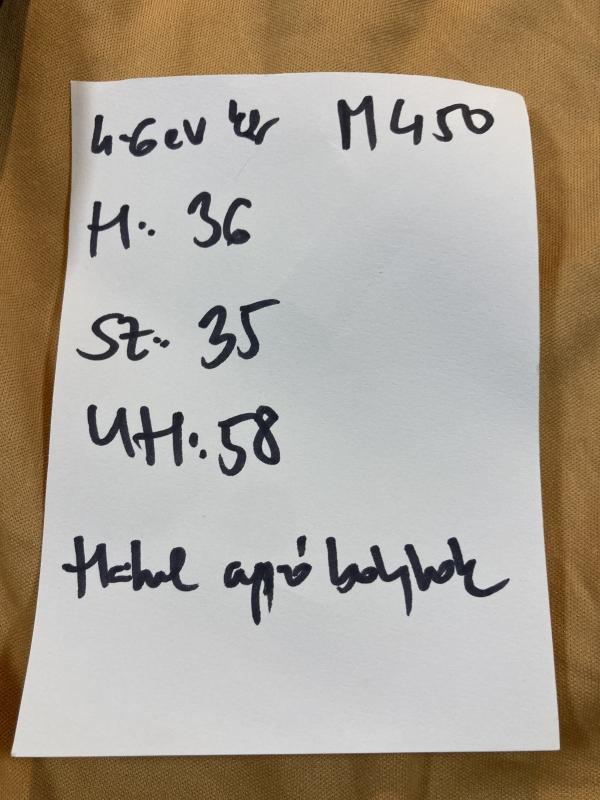 4-6 év kr M450
H.: 36
SZ.: 35
UH.: 58
apró bolyhok